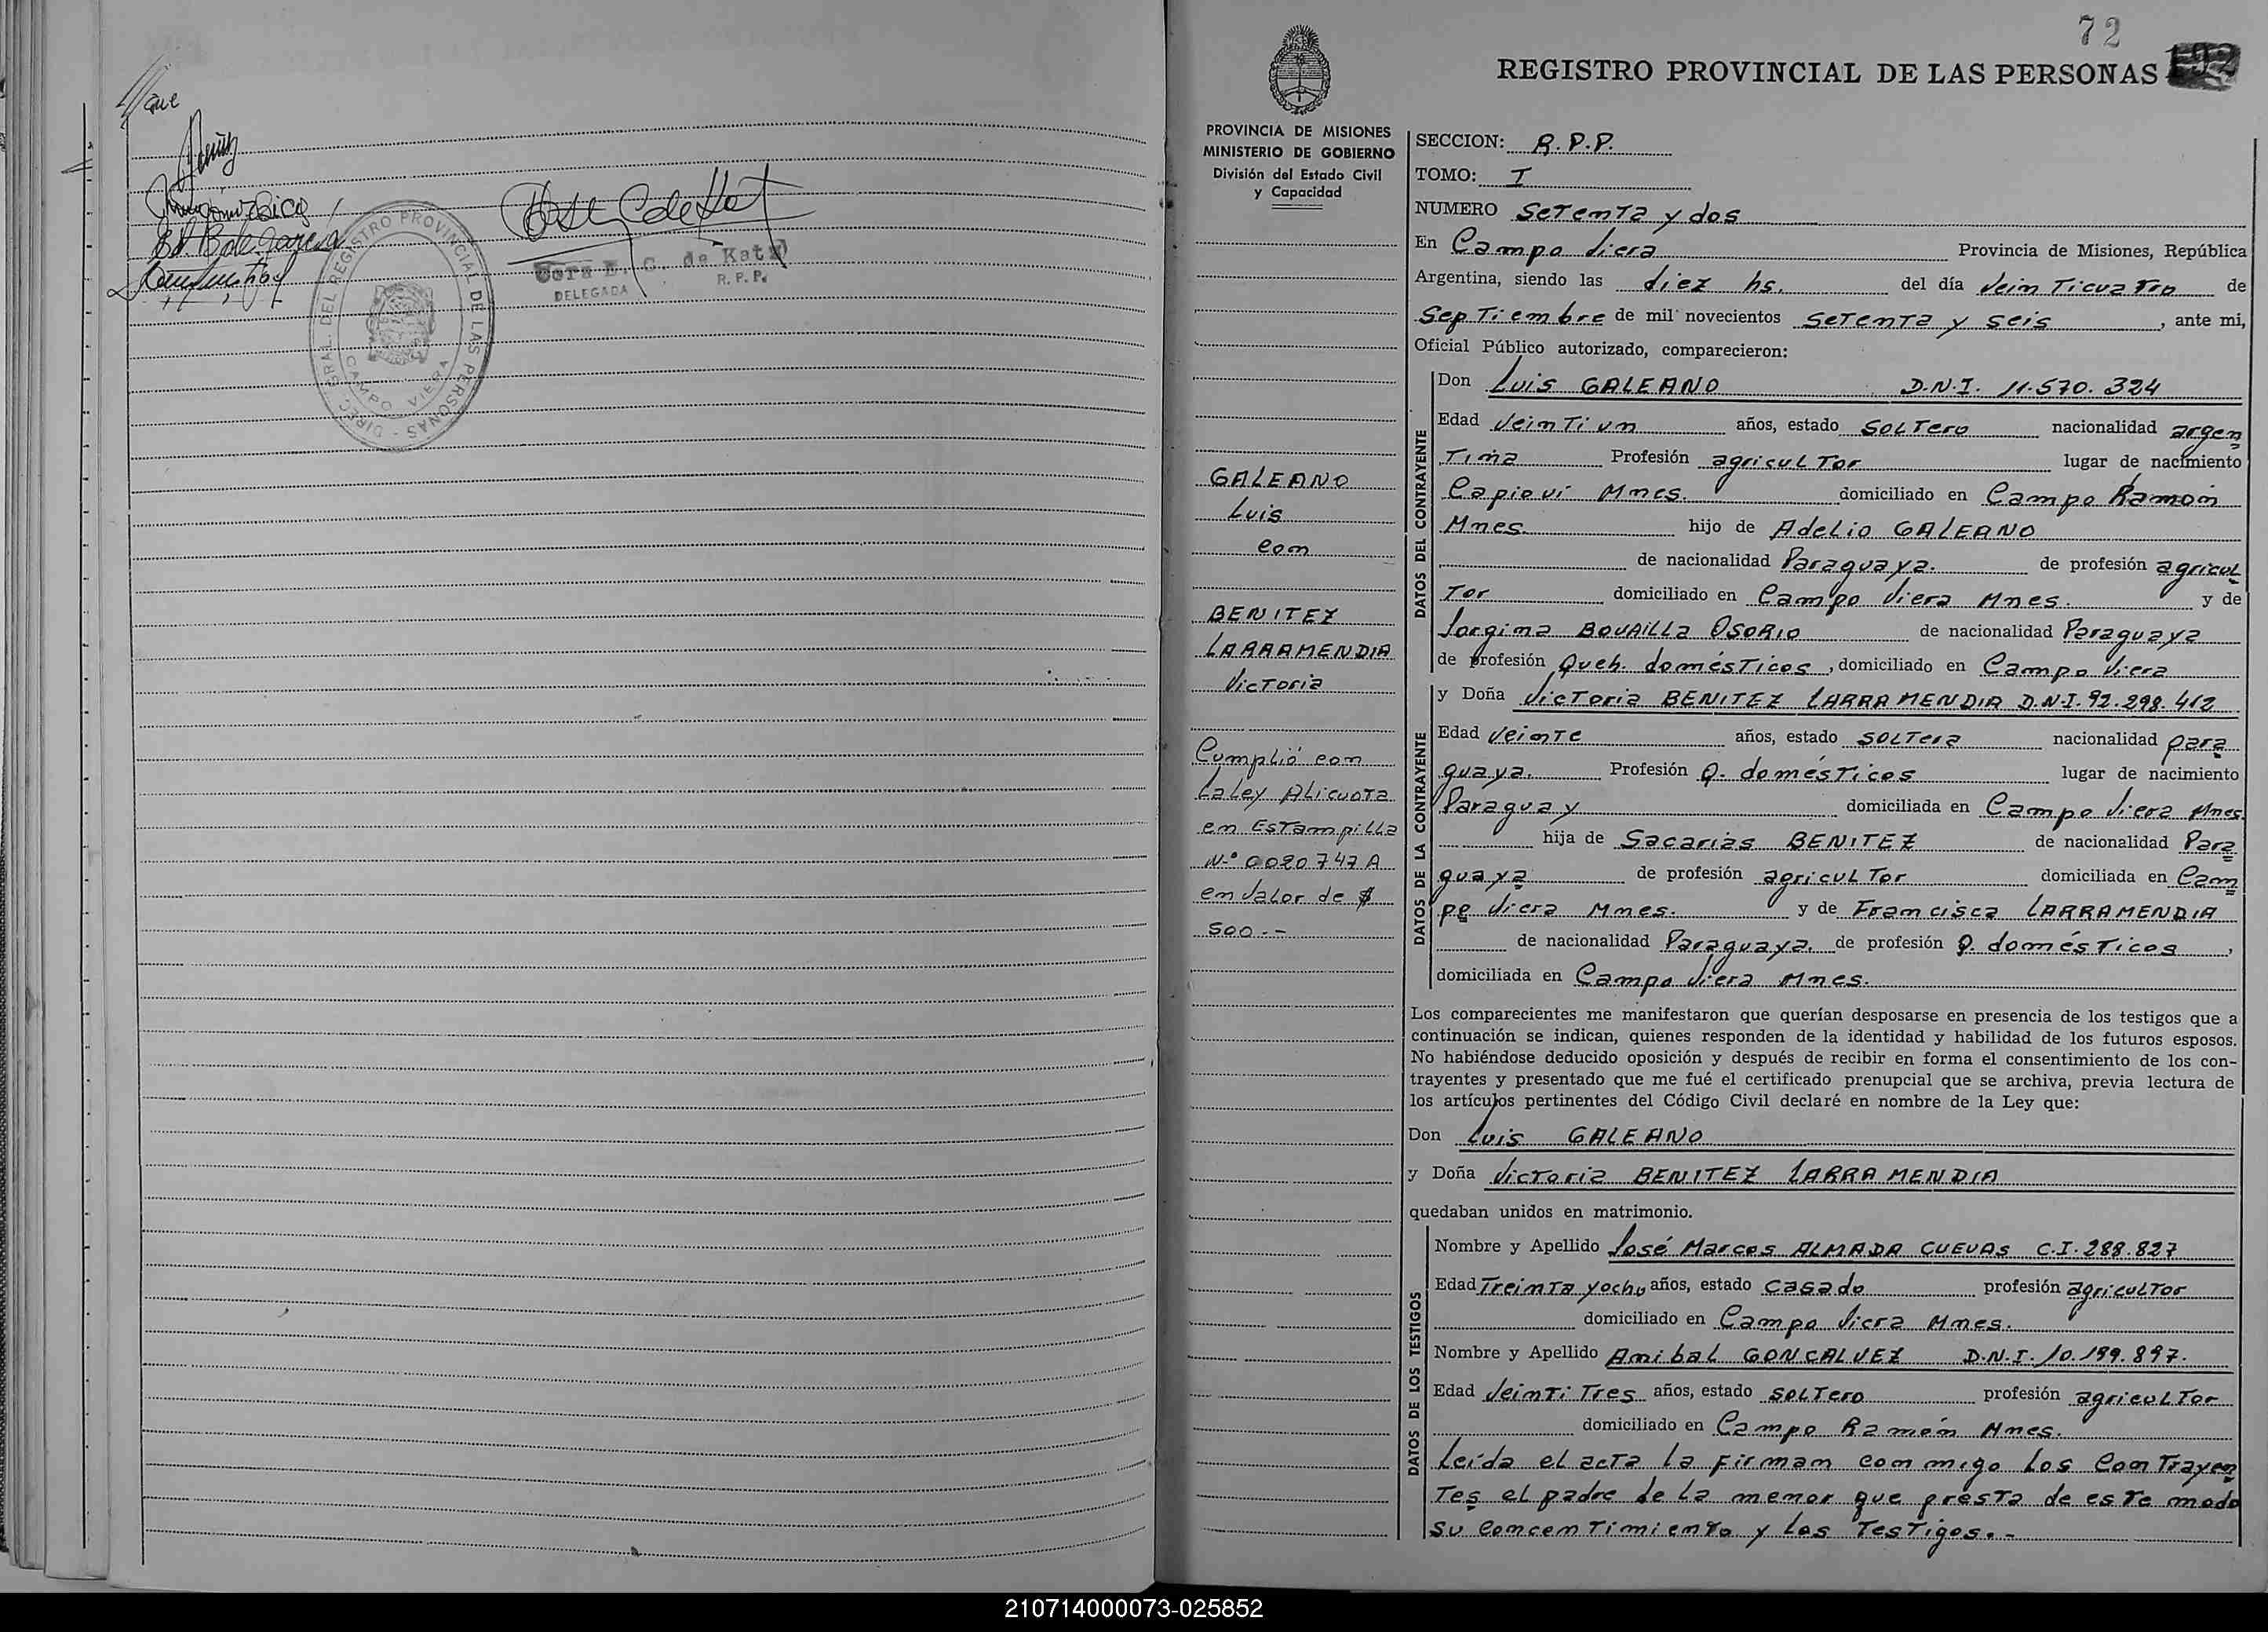 que
Cora E. C. de Katz
DELEGADA R. P. P.
DIREC. GRAL. DEL REGISTRO PROVINCIAL DE LAS PERSONAS -
CAMPO VIERA
72
192
REGISTRO PROVINCIAL DE LAS PERSONAS
PROVINCIA DE MISIONES
MINISTERIO DE GOBIERNO
División del Estado Civil
y Capacidad
GALEANO
Luis
con
BENITEZ
LARRAMENDIA
Victoria
Cumplió con
La Ley Alicuota
en Estampilla
N-° 0020747 A
en valor de $
500.-
SECCION: R.P.P.
TOMO: I
NUMERO Setenta y dos
En Campo Viera Provincia de Misiones, República
Argentina, siendo las diez hs. del día Veinticuatro de
Septiembre de mil novecientos setenta y seis, ante mi,
Oficial Público autorizado, comparecieron:
DATOS DEL CONTRAYENTE
Don Luis GALEANO D.N.I. 11.570.324
Edad Veintiun años, estado soltero nacionalidad argen
tina Profesión agricultor lugar de nacimiento
Capiovi Mnes. domiciliado en Campo Ramón
Mnes. hijo de Adelio GALEANO
de nacionalidad Paraguaya. de profesión agricul
tor domiciliado en Campo Viera Mnes. y de
Jorgina BOVAILLA OSORIO de nacionalidad Paraguaya
de profesión Queh. domésticos, domiciliado en Campo Viera
DATOS DE LA CONTRAYENTE
y Doña Victoria BENITEZ LARRAMENDIA D.N.I. 92.298.412
Edad Veinte años, estado soltera nacionalidad para
guaya. Profesión Q. domésticos lugar de nacimiento
Paraguay domiciliada en Campo Viera Mnes.
hija de Sacarias BENITEZ de nacionalidad Para
guaya de profesión agricultor domiciliada en Cam
po Viera Mnes. y de Francisca LARRAMENDIA
de nacionalidad Paraguaya. de profesión Q. domésticos,
domiciliada en Campo Viera Mnes.
Los comparecientes me manifestaron que querían desposarse en presencia de los testigos que a
continuación se indican, quienes responden de la identidad y habilidad de los futuros esposos.
No habiéndose deducido oposición y después de recibir en forma el consentimiento de los con-
trayentes y presentado que me fué el certificado prenupcial que se archiva, previa lectura de
los artículos pertinentes del Código Civil declaré en nombre de la Ley que:
Don Luis GALEANO
y Doña Victoria BENITEZ LARRAMENDIA
quedaban unidos en matrimonio.
DATOS DE LOS TESTIGOS
Nombre y Apellido José Marcos ALMADA CUEVAS C.I. 288.827
Edad Treinta yocho años, estado casado profesión agricultor
domiciliado en Campo Viera Mnes.
Nombre y Apellido Anibal GONCALVEZ D.N.I. 10.199.897.
Edad Veintitres años, estado soltero profesión agricultor
domiciliado en Campo Ramón Mnes.
Leída el acta la firman conmigo los contrayen
tes el padre de la menor que presta de este modo
su concentimiento y los testigos.-
210714000073-025852